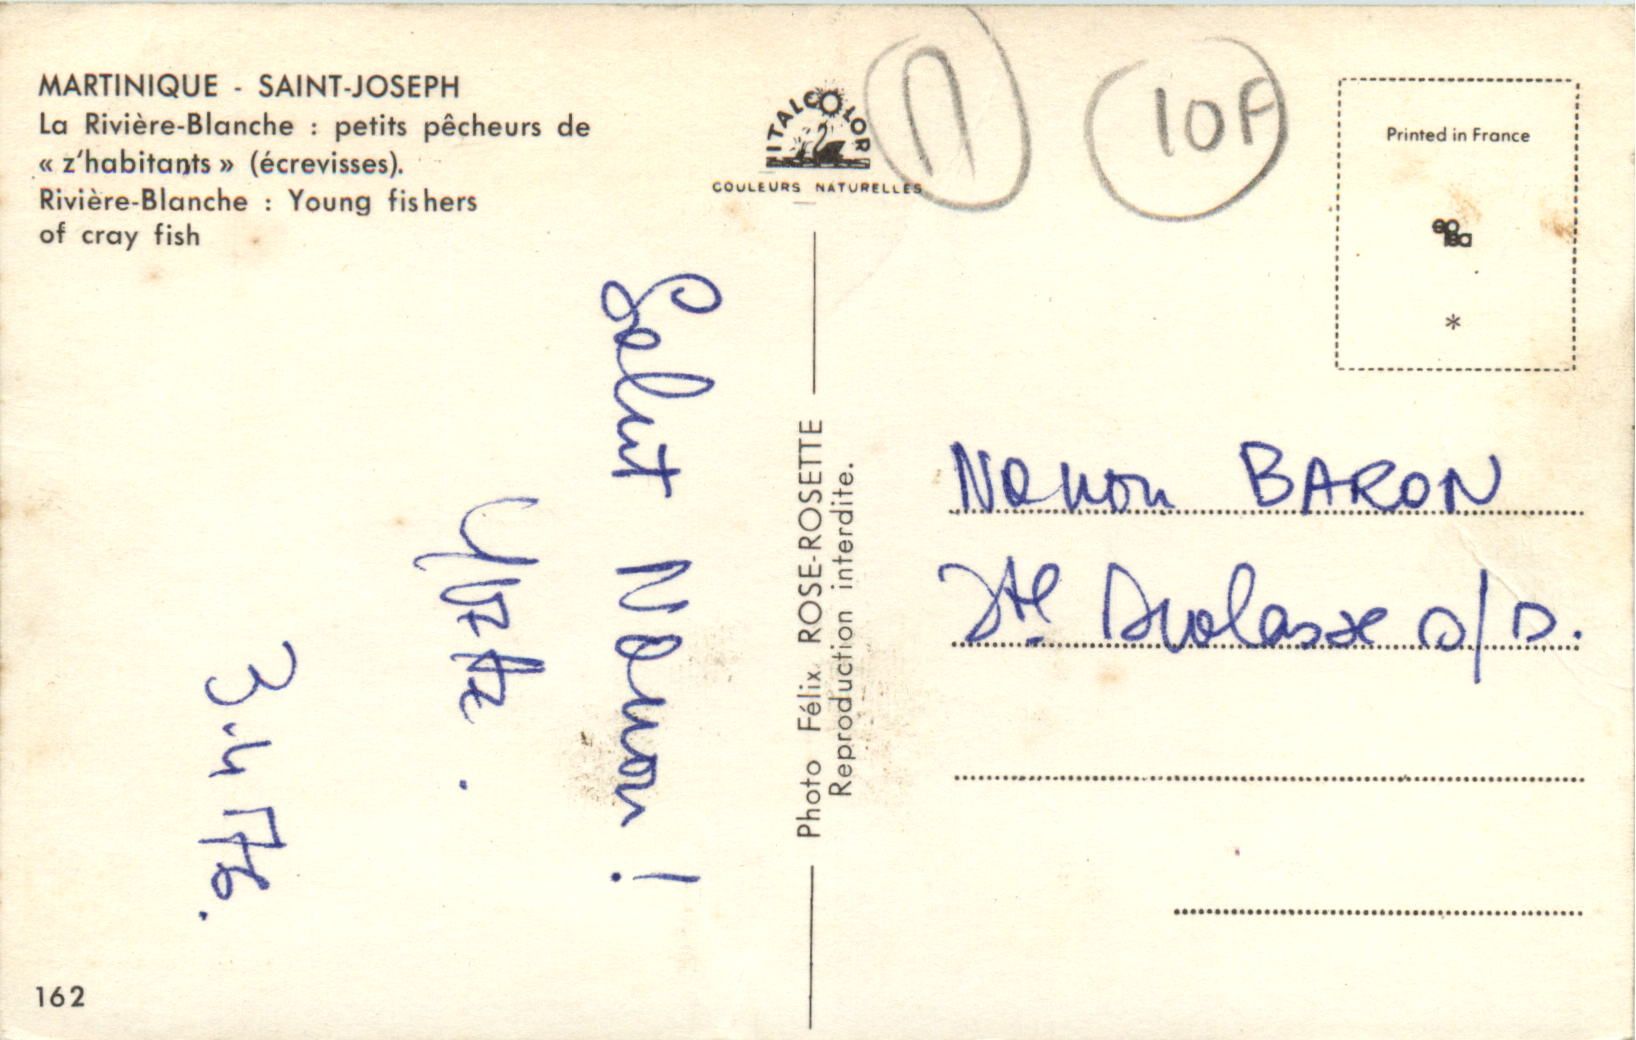 MARTINIQUE - SAINT-JOSEPH
La Rivière-Blanche : petits pêcheurs de
« z'habitants » (écrevisses).
Rivière-Blanche : Young fishers
of cray fish
ITALCOLOR
COULEURS NATURELLES
10F
Printed in France
*
Salut Nanon !
3.4.76.
Photo Félix ROSE-ROSETTE
Reproduction interdite.
Nanon BARON
Ste Scolasse s/
162